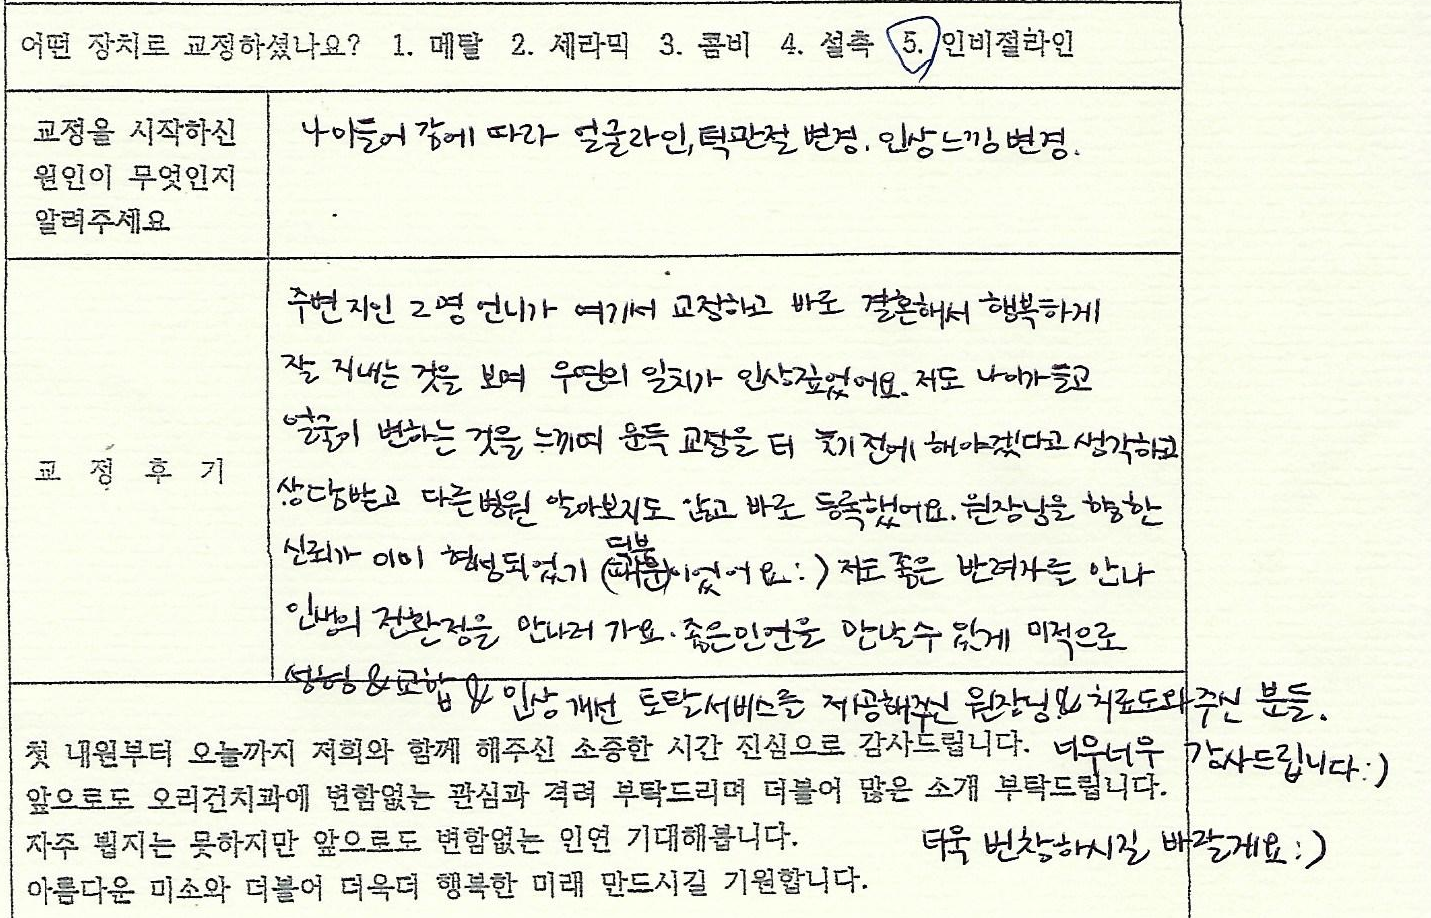 어떤 장치로 교정하셨나요? 1. 메탈 2. 세라믹 3. 콤비 4. 설측 5. 인비절라인
교정을 시작하신
원인이 무엇인지
알려주세요
나이들어 감에 따라 얼굴라인, 턱관절 변경. 인상느낌 변경.
교 정 후 기
주변 지인 2명 언니가 여기서 교정하고 바로 결혼해서 행복하게
잘 지내는 것을 보며 우연의 일치가 인상깊었어요. 저도 나이가 들고
얼굴이 변하는 것을 느끼며 문득 교정을 더 늦기 전에 해야겠다고 생각하고
상담받고 다른병원 알아보지도 않고 바로 등록했어요. 원장님을 향한
신뢰가 이미 형성되었기 덕분
이었어요:) 저도 좋은 반려자를 만나
인생의 전환점을 만나러 가요. 좋은인연을 만날수 있게 미적으로
성형 & 교합 & 인상개선 토탈서비스를 제공해주신 원장님& 치료도와주신 분들.
첫 내원부터 오늘까지 저희와 함께 해주신 소중한 시간 진심으로 감사드립니다. 너무너무 감사드립니다:)
앞으로도 오리건치과에 변함없는 관심과 격려 부탁드리며 더불어 많은 소개 부탁드립니다.
자주 뵙지는 못하지만 앞으로도 변함없는 인연 기대해봅니다. 더욱 번창하시길 바랄게요:)
아름다운 미소와 더불어 더욱더 행복한 미래 만드시길 기원합니다.